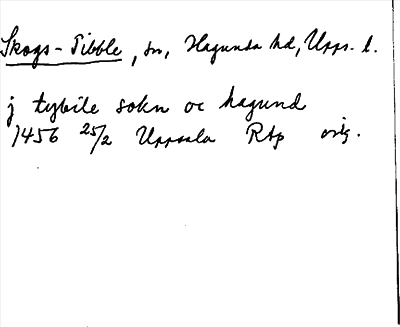 Skogs-Tibble, sn, Hagunda hd, Upps. l.
j tybile sokn oc hagund
1456 25/2 Uppsala RAp orig.